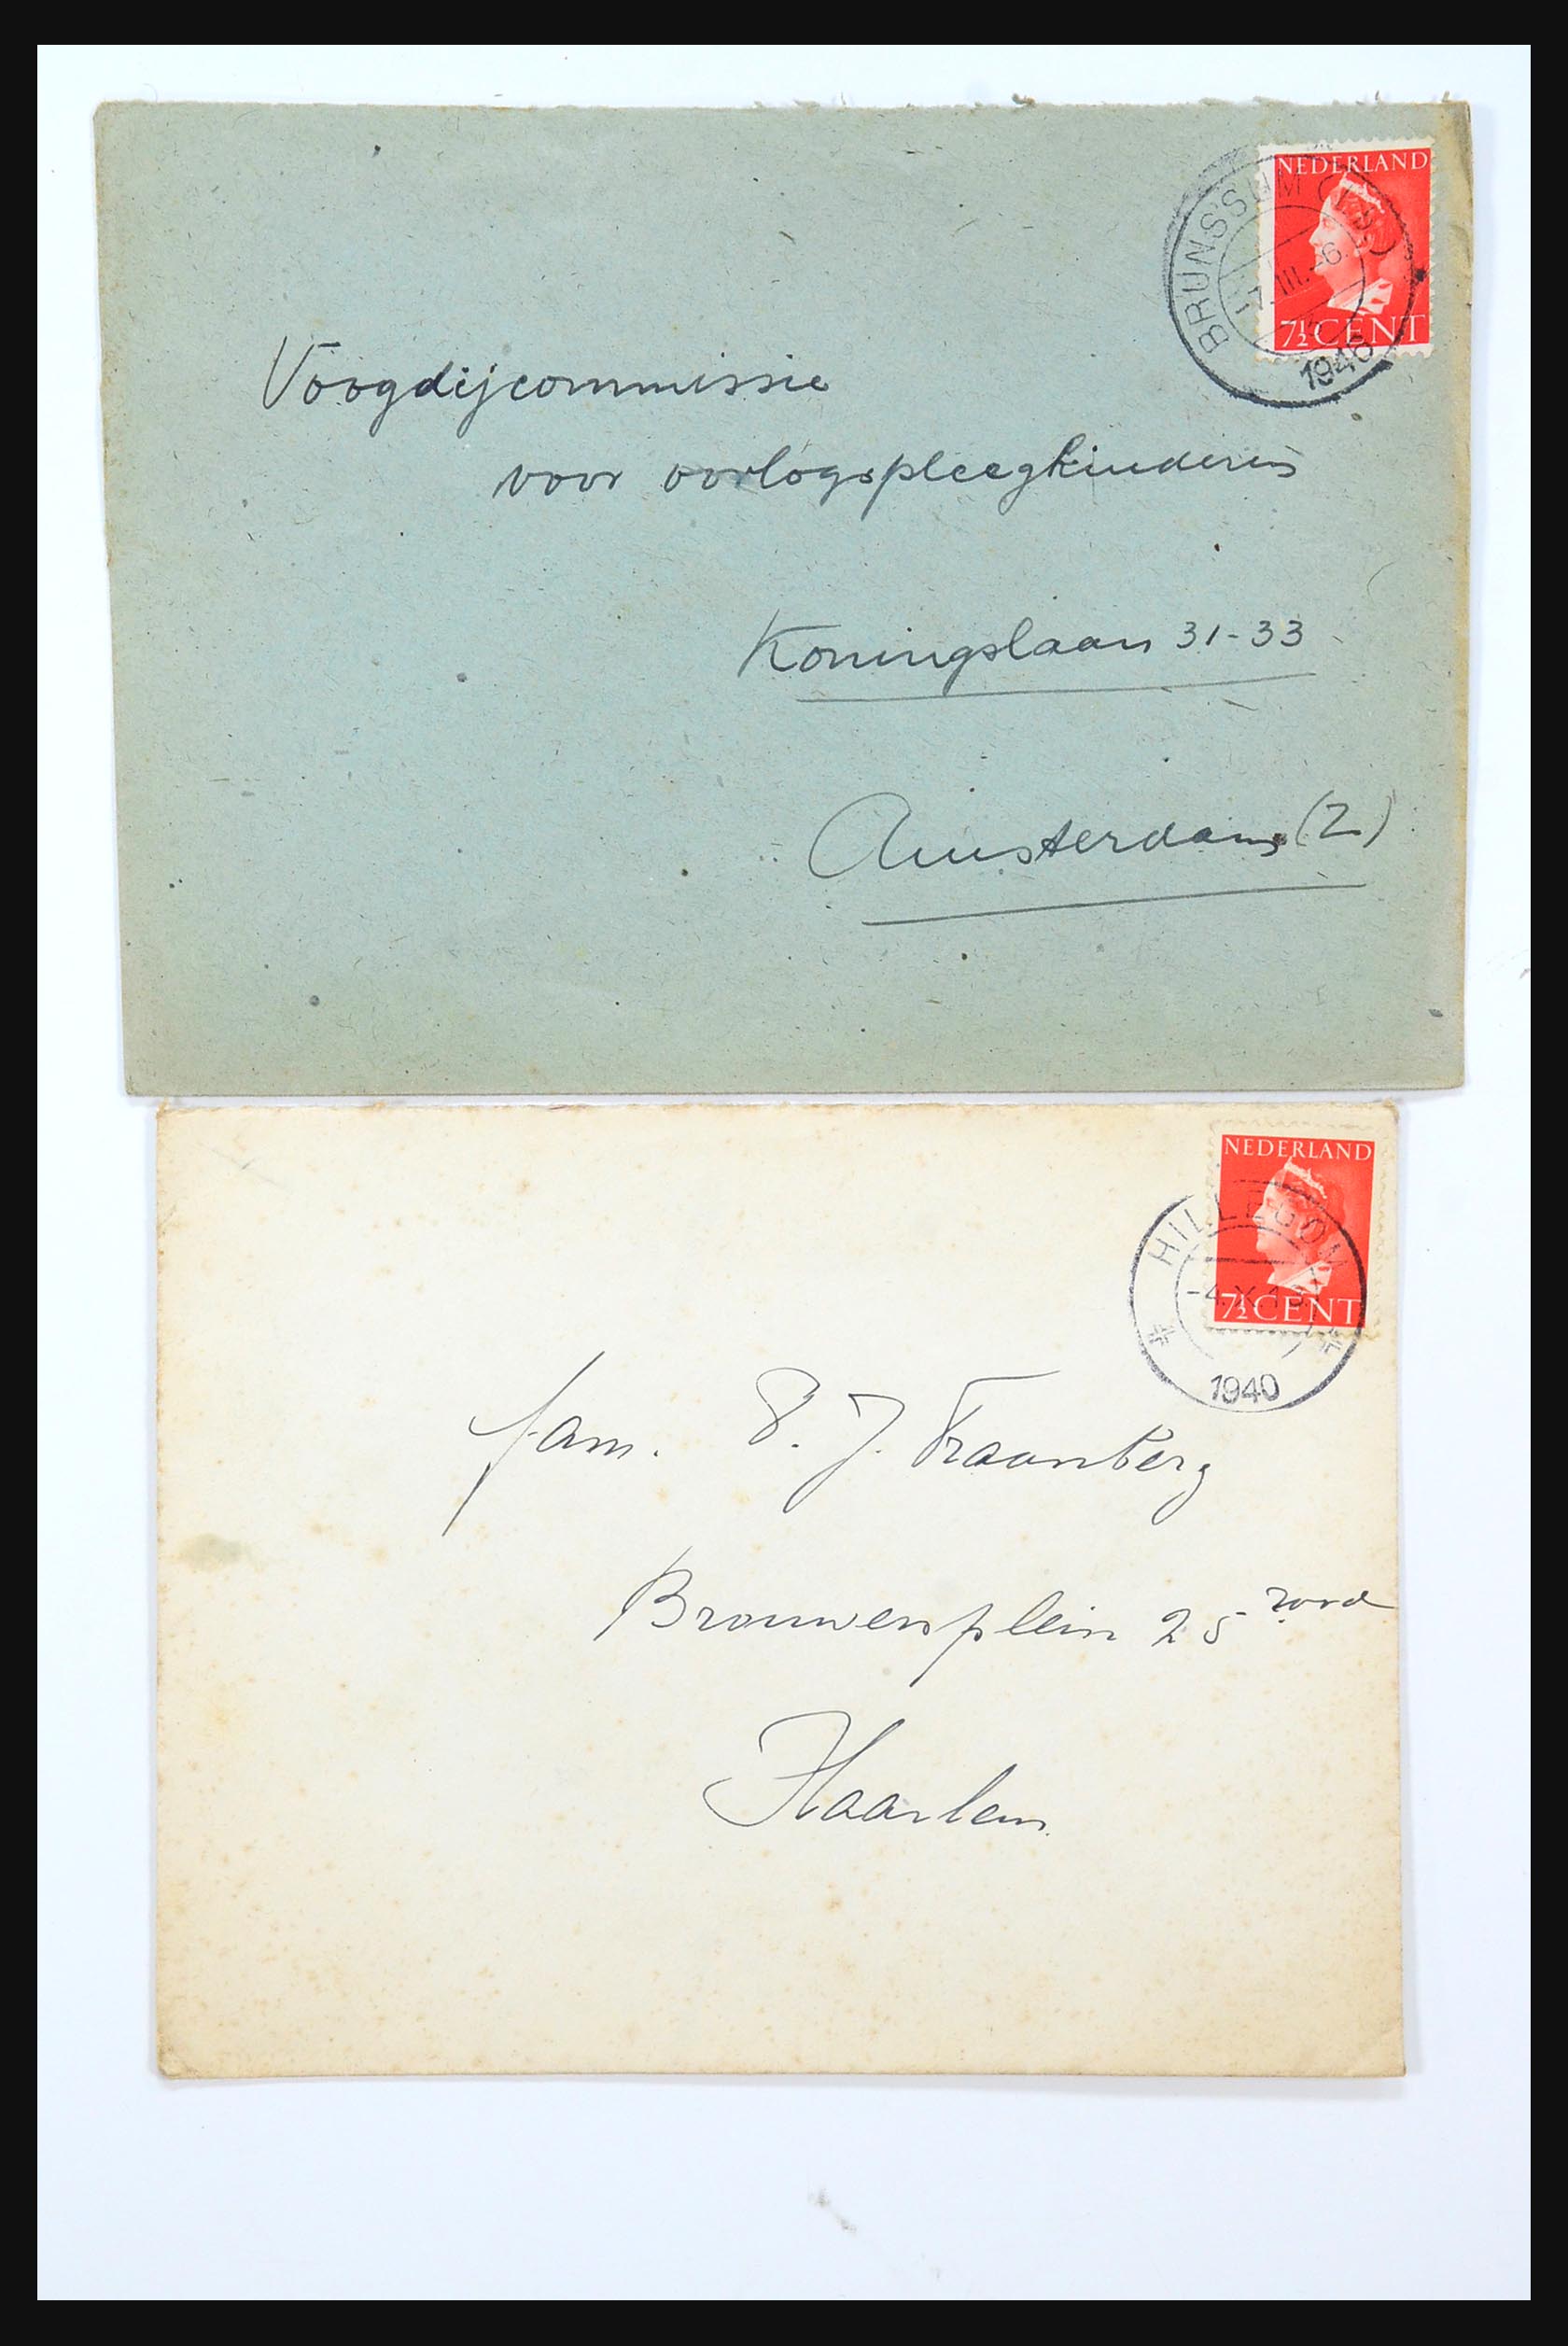 NEDERLAND
7½ CENT
BRUNSSUM (LB.)
1946
Voogdijcommissie
voor oorlogspleegkinderen
Koningslaan 31-33
Amsterdam (Z)
NEDERLAND
7½ CENT
HILLEGOM
1940
fam. P. J. Traanberg
Brouwersplein 25 rood
Haarlem